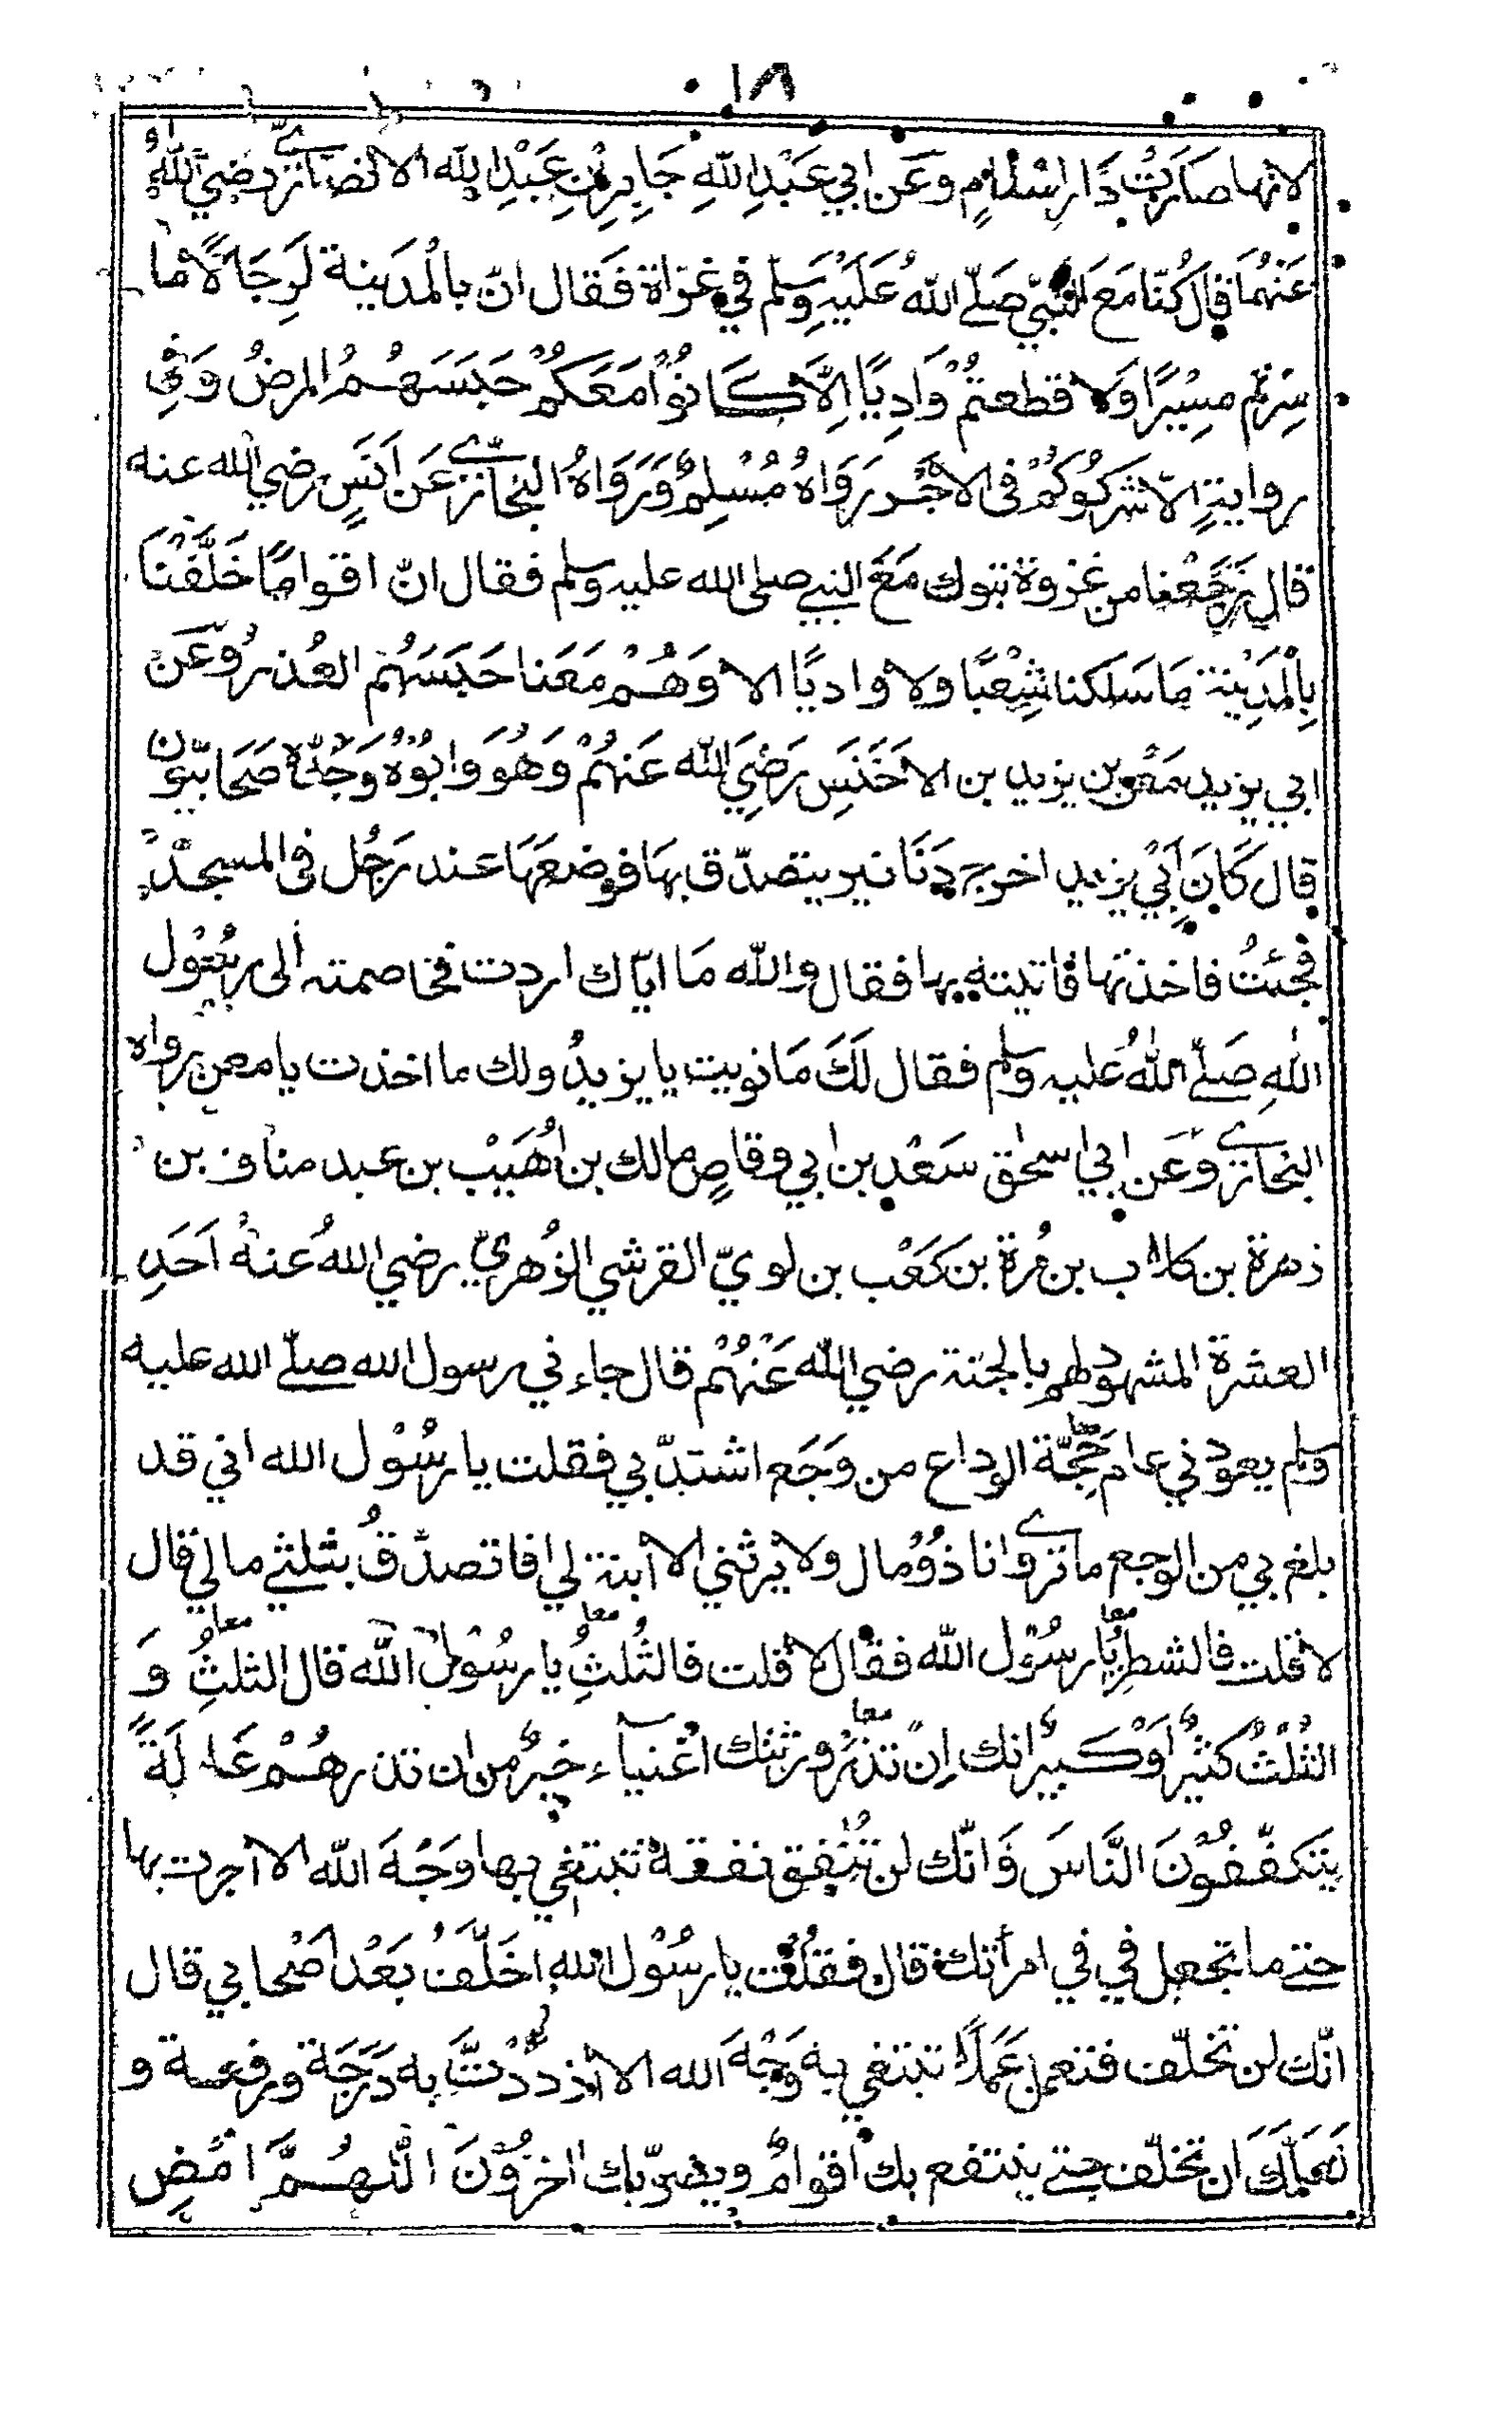 ١٨
لانها صَارَتْ دَارَ اسْلامٍ وعَن ابي عَبْدِ اللّٰهِ جَابِرِ بْنِ عَبْدِ اللّٰه الانصَاري رضِيَ اللّٰهُ
عَنْهُمَا قَالَ كُنّا مَعَ النَّبيّ صَلّے اللّٰهُ عَلَيْهِ وَسَلّم في غزاة فَقال انّ بالْمَدَينة لَرِجَالًا مَا
سِرْتم مسِيْرًا وَلا قطعتمْ وَادِيًا اِلَّا كَانُوْا مَعَكُمْ حَبَسَهُمُ المرضُ وَفي
روايةٍ الّا شركُوكُمْ فى الاجْر رَوَاهُ مُسْلِمٌ وَرَوَاهُ البُخَاري عَن اَنَسٍ رضي الله عنه
قال رَجَعْنا من غزوة تبوك مَعَ النبي صلى الله عليه وسلم فقال انّ اقوامًا خَلْفَنَا
بِالْمَدَيْنة مَا سَلَكنا شِعْبًا ولا واديًا الا وَهُمْ مَعَنا حَبَسَهُم العُذر وَعَن
ابي يزيد مَعْن بن يزيد بن الاخَنَسِ رَضِيَ اللّٰه عَنهُمْ وَهُوَ وَابُوْهُ وَجَدّهُ صَحَابيّون
قال كَانَ اَبي يزيد اخرج دَنَانير يتصدّق بهَا فوضعَهَا عند رَجُل فى المسجدْ
فجئتُ فاخذتها فاتيته بها فقال والله مَا ايّاك اردت فخاصمته الى رسُوْل
اللّٰهِ صَلّے اللّٰهُ عليه وسلم فقال لَكَ مَا نويت يا يزيدُ ولك ما اخذت يا معن رواه
البُخاري وَعَن ابي اسحٰق سَعْدِ بن ابي وقاصٍ مالك بن اُهَيْب بن عبد مناف بن
زهرة بن كلاب بن مُرة بن كعْب بن لويّ القرشي الزُهريّ رضي اللّٰهُ عَنهُ اَحَدِ
العشرة المشهود لهم بالجنة رضي اللّٰه عَنْهُمْ قال جاءني رسول الله صلّے الله عليه
وسلم يعودني عام حَجّة الوداع من وَجَع اشتدّ بي فقلت يا رسُوْل الله اني قد
بلغ بي من الوجع ما ترى وانا ذُوْمال ولا يرثني الا ابنة لي افاتصدّقُ بثلثي مالي قال
لا قلت فالشطر يا رسُوْل اللّٰه فقال لا قلت فالثُلثِ يا رسُوْلَ اللّٰه قال الثلثِ وَ
الثُلْثُ كثيرٌ اَوْ كبيرٌ انك اِن تذر ورثتك اَغنياء خيرٌ من ان تذرهُمْ عَالَةً
يتكفّفُوْنَ النَّاسَ وَانّك لن تُنْفِق نفقة تبتغي بها وَجْهَ اللّٰه الا اجرت بها
حتے ما تجعل في في امرأتك قال فقلت يا رسُوْل الله اخَلّفُ بَعْدَ اَصْحابي قال
انّك لن تخلّف فتعمل عَمَلًا تبتغي به وَجْهَ الله الا ازددْتَ به دَرَجَة ورفعة و
لعَلّكَ ان تخلّف حتے ينتفع بك اقوامٌ ويضرّ بك اخرُوْنَ اللّٰهُمَّ امْضِ